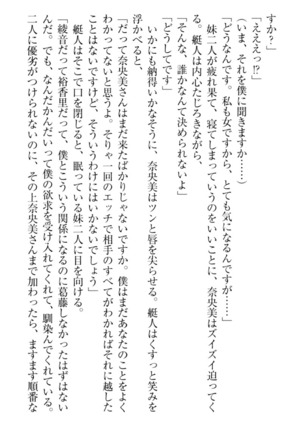 すか？
「えええっ!?」
（いま、それを僕に聞きますか……）
「どうなんです。私も女ですから、とても気になるんですが……」
　妹二人が疲れ果て、寝てしまっているのをいいことに、奈央美はズイズイ迫ってく
る。艇人は内心たじろぎながら、
「そんな、誰かなんて決められないよ」
「どうしてです」
　いかにも納得いかなそうに、奈央美はツンと唇を尖らせる。艇人はくすっと笑みを
浮かべると、
「だって奈央美さんはまだ来たばかりじゃないですか。僕はまだあなたのことをよく
わかってないと思うよ。そりゃ一回のエッチで相手のすべてがわかればそれに越した
ことはないですけど、そういうわけにはいかないでしょう」
　艇人はそこで口を閉じると、眠っている妹二人に目を向ける。
「綾音だって裕香里だって、僕とこういう関係になるのに葛藤しなかったはずはない
んだ。でも、なんだかんだいって僕の欲求を受け入れてくれて、馴染んでくれている。
二人に優劣がつけられないのに、その上奈央美さんまで加わったら、ますます順番な